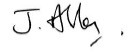 J. Allen.